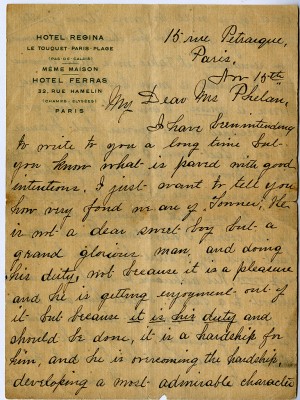 HOTEL REGINA
LE TOUQUET-PARIS-PLAGE
(PAS-DE-CALAIS)
MÊME MAISON
HOTEL FERRAS
32, RUE HAMELIN
(CHAMPS-ELYSÉES)
PARIS
15 rue Petrarque,
Paris,
Nov 15th
My Dear Mrs Phelan,
I have been intending
to write to you a long time but
you know what is paved with good
intentions. I just want to tell you
how very fond we are of He
is not a dear sweet boy but a
grand glorious man, and doing
his duty, not because it is a pleasure
and he is getting enjoyment out of
it but because it is his duty and
should be done, it is a hardship for
him, and he is overcoming the hardship,
developing a most admirable character